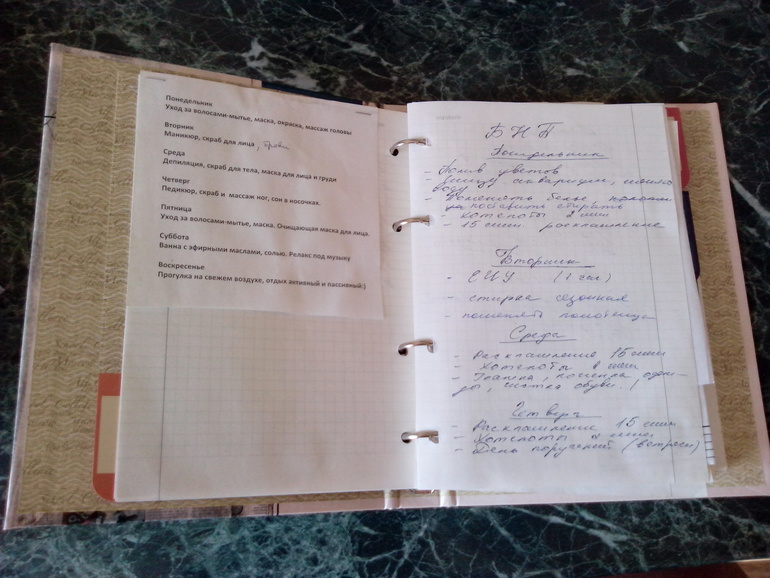 Понедельник
Уход за волосами-мытье, маска, окраска, массаж головы
Вторник
Маникюр, скраб для лица, брови
Среда
Депиляция, скраб для тела, маска для лица и груди
Четверг
Педикюр, скраб и массаж ног, сон в носочках.
Пятница
Уход за волосами-мытье, маска. Очищающая маска для лица.
Суббота
Ванна с эфирными маслами, солью. Релакс под музыку
Воскресенье
Прогулка на свежем воздухе, отдых активный и пассивный:)
БНП
Понедельник
- Полив цветов
- аквариум,
воду
- Поменять белье
поставить стирать
- Хотспоты 2 мин
- 15 мин. расхламление
Вторник
- ЕИУ (1 час)
- стирка сезонная
- поменять полотенца
Среда
- Расхламление 15 мин
- Хотспоты 2 мин
- Глажка, починка одеж-
ды, чистка обуви.
Четверг
- Расхламление 15 мин
- Хотспоты 2 мин
- День поручений (встречи)